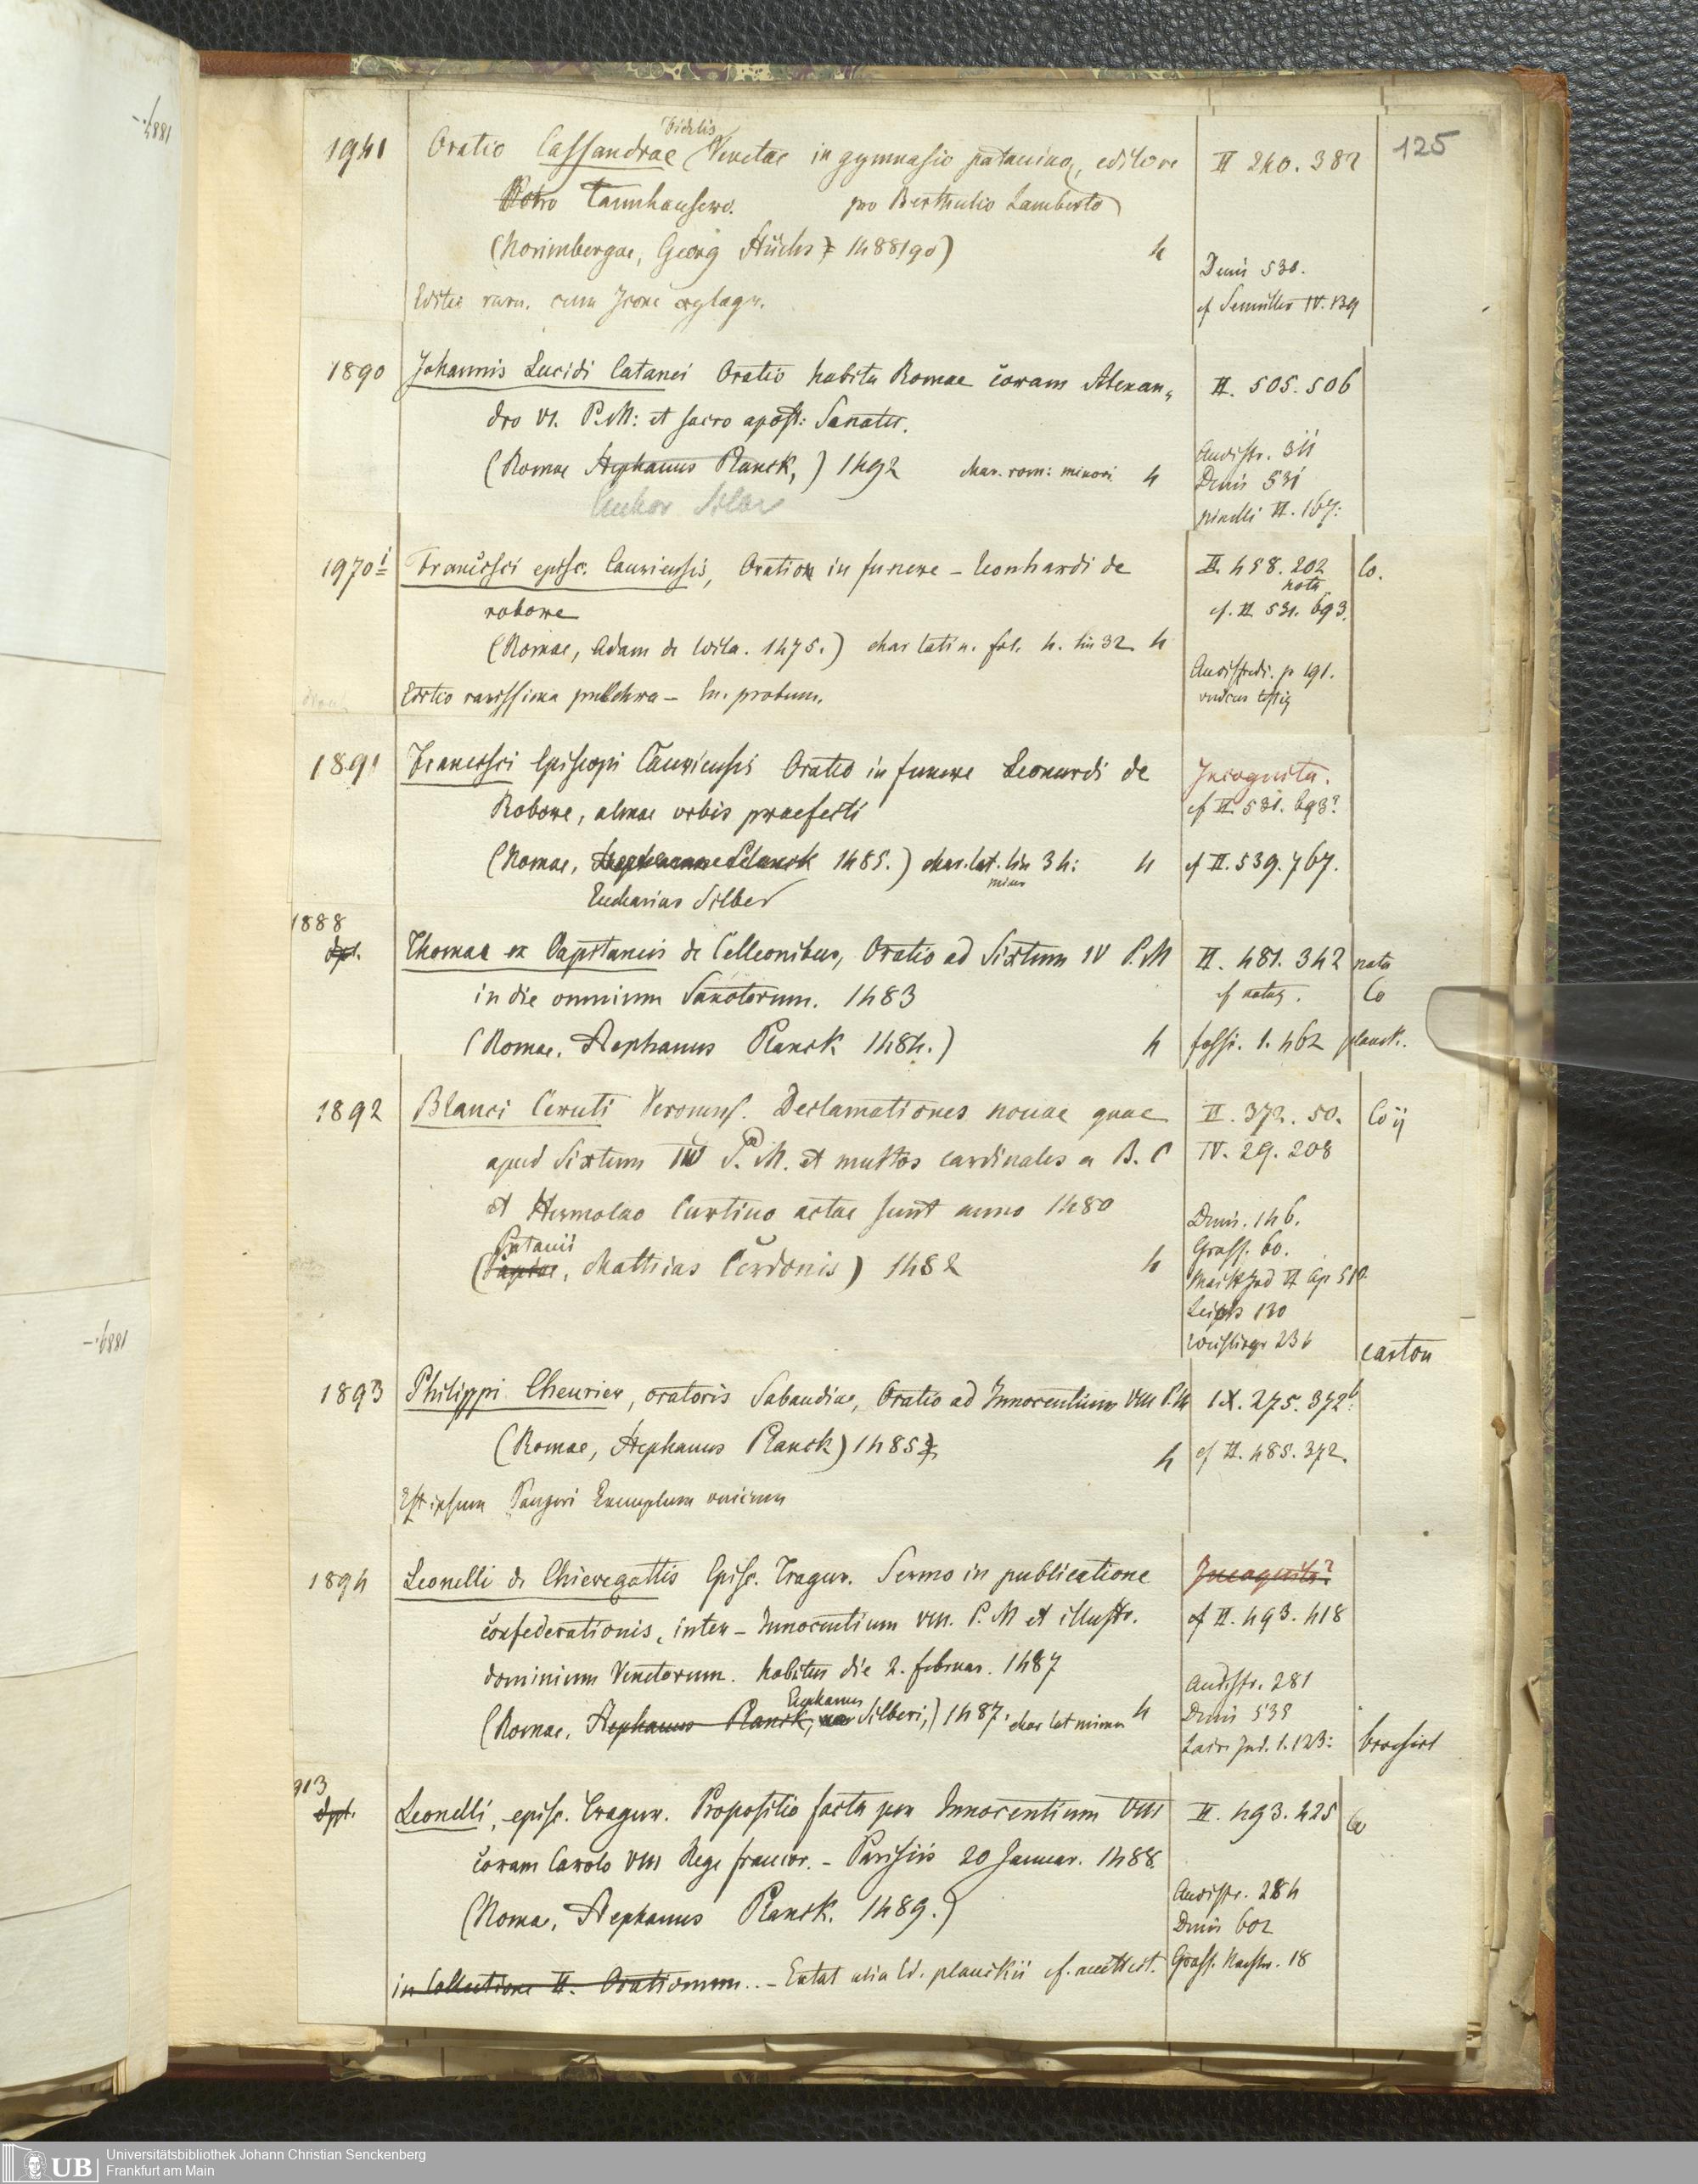 125
Fidelis
1941 Oratio Cassandrae Venetae in gymnasio patauino, editore II 240. 382
Petro Tannhausero. pro Berthutio Lamberto
(Norimbergae, Georg Stüchs 1488/90) 4
Denis 530.
Editio rara. cum Icone xylogr. cf Semiller IV. 139
1890 Johannis Lucidi Catanei Oratio habita Romae coram Alexan„ II. 505. 506
dro VI. P.M: et sacro apost: Senatu.
Audiffr. 311
(Romae Stephanus Planck,) 1492 char. rom: minori 4 Denis 531
Euchar Silber pinelli II. 167:
1970 Francisci episc. Cauriensis, Oratio in funere – Leonhardi de II. 458. 202 Co.
nota
robore cf. II 531. 693.
(Romae, Adam de Wila. 1475.) char latin. fol. 4. lin 32 4
Audiffredi. p 191.
Editio rarissima pulchra –
1891 Francisci Episcopi Cauriensis Oratio in funere Leonardi de Incognita.
cf II. 531. 693?
Robore, almae orbis praefecti
(Romae, Stephanus Planck 1485.) char. lat. lin 34: 4 cf II. 539. 767.
minor
Eucharius Silber
1888
dpl. Thomae ex Capitaneis de Celleonibus, Oratio ad Sixtum IV P.M II. 481. 342 nota
in die omnium Sanctorum. 1483 cf nota. Co
(Romae. Stephanus Planck 1484.) 4 fossi. 1. 462 planck.
1892 Blanci Ceruti Veronens. Declamationes nouae quae II. 372. 50. Co ij
apud Sixtum IV P.M. et multos cardinales a B. C IV. 29. 208
et Hermolao Curtino actae sunt anno 1480
Denis. 146.
Patauii Grass. 60.
(Papiae, Mathias Cerdonis) 1482 4
Leichs 130
236
carton
1893 Philippi Cheurier, oratoris Sabaudiae, Oratio ad Innocentium VIII P.M IX. 275. 372b:
(Romae, Stephanus Planck) 1485 4 cf II. 485. 372.
Est ipsum Panzeri Exemplum unicum
1894 Leonelli de Chieregattis Episc. Tragur. Sermo in publicatione Incognita?
confederationis, inter – Innocentium VIII. P.M et illustr. cf II. 493. 418
dominium Venetorum. habitus die 2. februar. 1487
Audiffr. 281
Eucharius
(Romae. Stephanus Planck, Silberi,) 1487. char lat minor 4 Denis 533
Laire Ind. 1. 123: brosirt
913
dpl. Leonelli, episc. Tragur. Propositio facta per Innocentium VIII II. 493. 425 Co
coram Carolo VIII Rege francor. – Parisiis 20 Januar. 1488.
Audiffr. 284
(Romae, Stephanus Planck. 1489.) Denis 602
in Collectione II. Orationum. – Extat alia Ed. planckii Grass. 18
1887.–
1889.–
UB Universitätsbibliothek Johann Christian Senckenberg
Frankfurt am Main